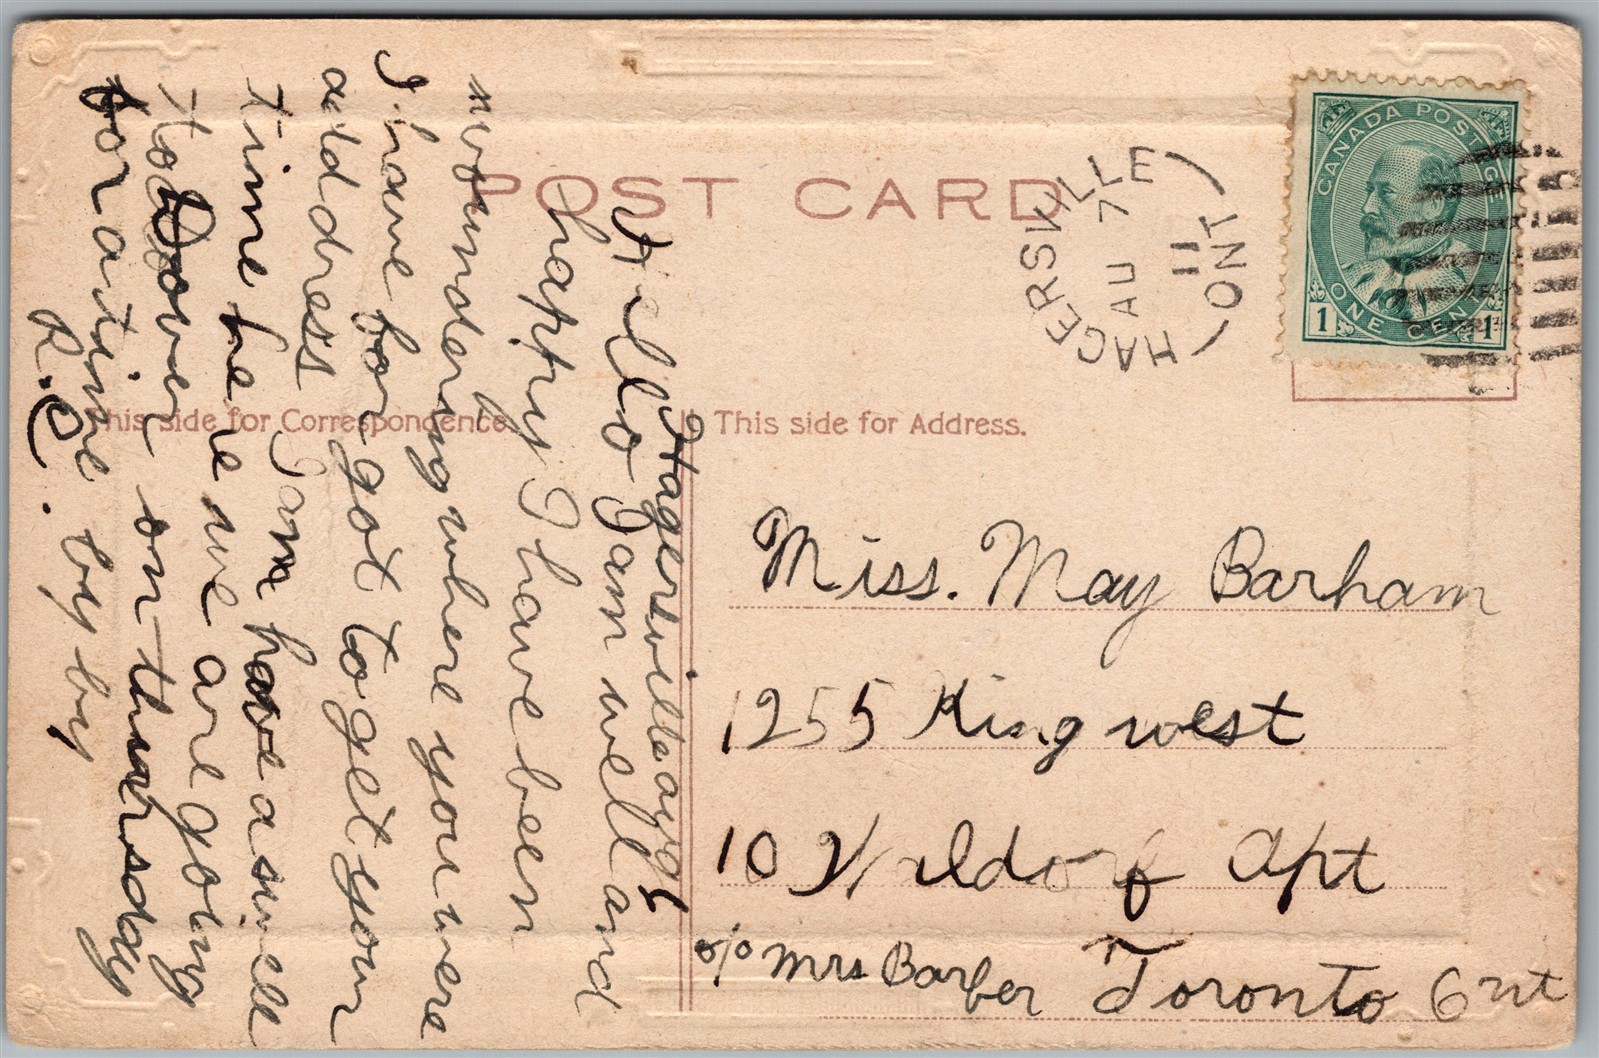 POST CARD
This side for Correspondence
This side for Address.
HAGERSVILLE
AU 7
11
ONT
CANADA POSTAGE
1 ONE CENT 1
Hagersville aug 6
Hello I am well and
happy I have been
woundering where you were
I have for got to get your
address I am have a swell
time he re we are going
to Dover on thursday
for a time by by
R.C.
Miss. May Barham
1255 King west
10 Waldorf Apt
c/o Mrs Barber Toronto Ont